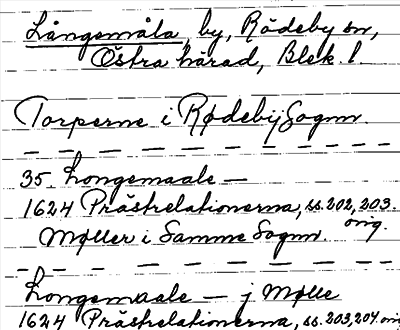 Långemåla, by, Rödeby sn,
Östra härad, Blek. l.
Torperne i Rødebij Sognn.
35. Longemaale —
1624 Prästrelationerna, ss. 202, 203.
orig.
Møller i Samme Sognn.
Longemaale — j Mølle
1624 Prästrelationerna, ss. 203, 204 orig